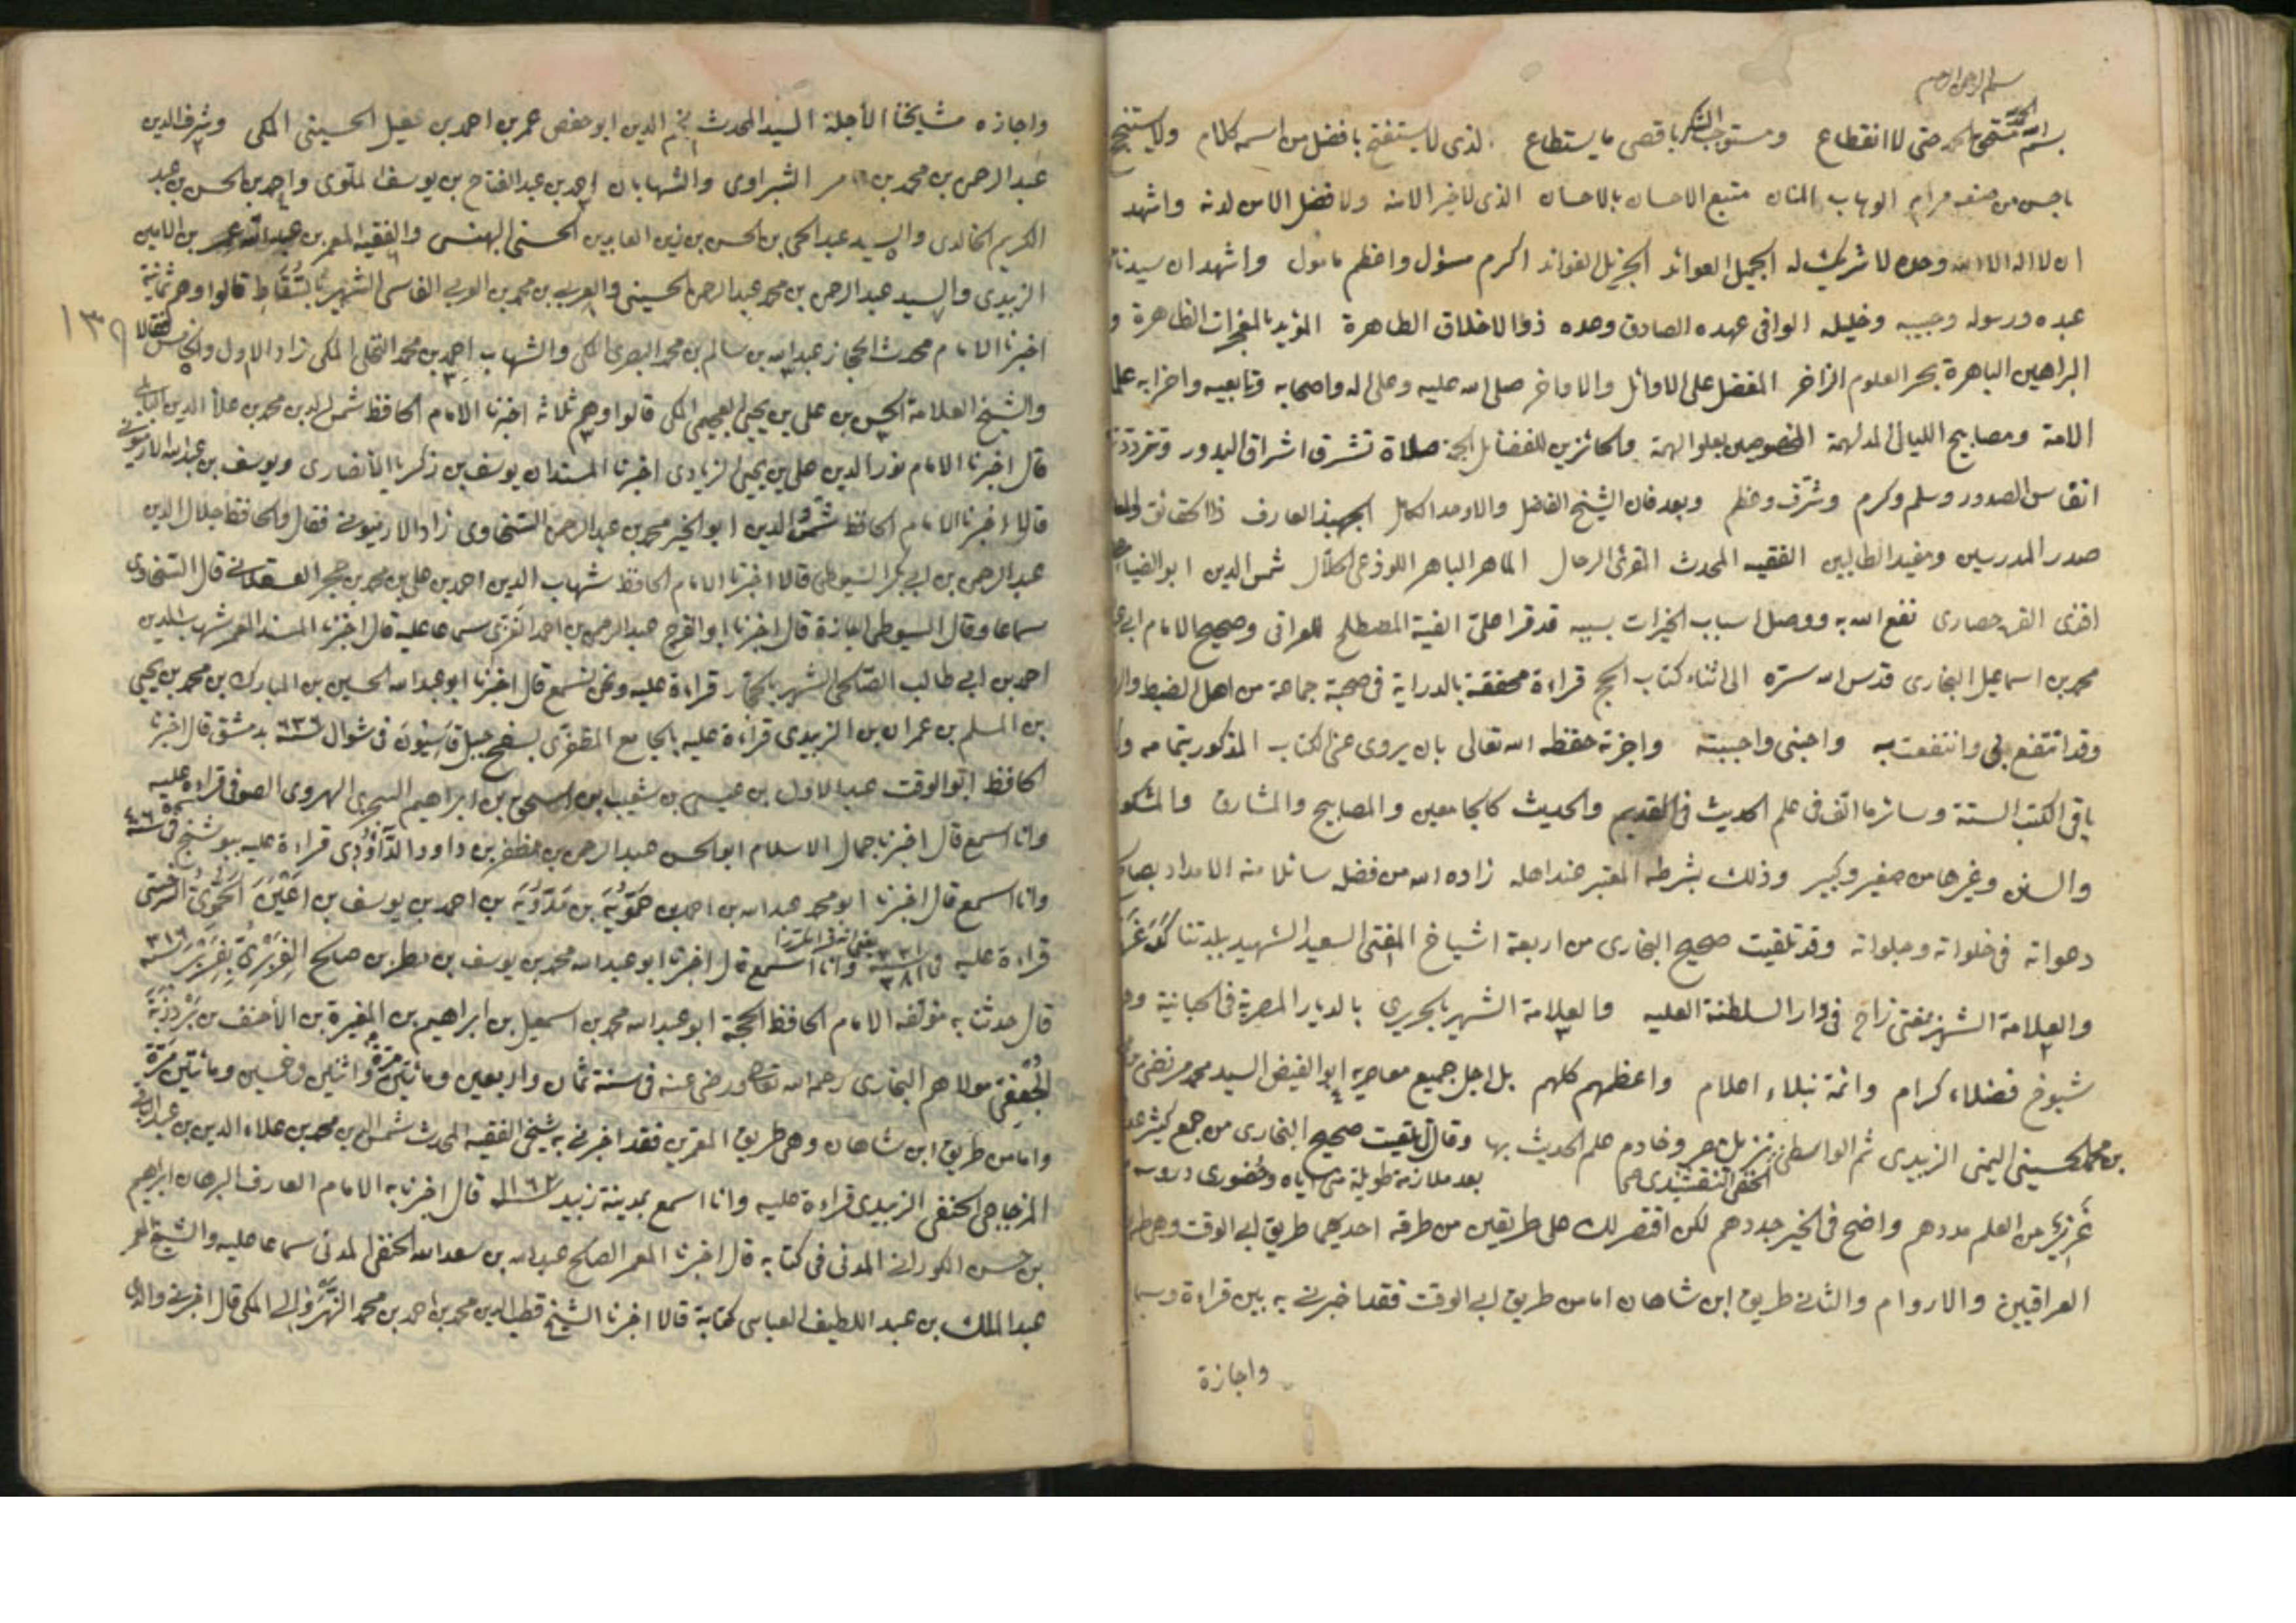 بسم الله الرحمن الرحيم
بسم الله مستحق الحمد حتى لا انقطاع ومستوجب الشكر باقصى ما يستطاع الذى لا يستفتح بافضل من اسمه كلام ولا يستنجح
باحسن من صنعه مرام الوهاب المنان متبع الاحسان بالاحسان الذى لا خير الا منه ولا فضل الا من لدنه واشهد
ان لا اله الا الله وحده لا شريك له الجميل العوائد الجزيل الفوائد اكرم مسؤل واعظم مامول واشهد ان سيدنا
عبده ورسوله وحبيبه وخليله الوافى عهده الصادق وعده ذو الاخلاق الطاهرة المؤيد بالمعجزات الظاهرة و
البراهين الباهرة بحر العلوم الزاخر المفضل على الاوائل والاواخر صلى الله عليه وعلى اله واصحابه وتابعيه واحزابه
الامة ومصابيح الليالى المدلهمة المخصوصين بعلو الهمة والحائزين للفضائل الجمة صلاة تشرق اشراق البدور وتتردد
انفاس الصدور وسلم وكرم وشرف وعظم وبعد فان الشيخ الفاضل والاوحد الكامل الجهبذ العارف ذا الحقائق
صدر المدرسين ومفيد الطالبين الفقيه المحدث المقرئ الرحال الماهر الباهر اللوذعى الحلال شمس الدين ابو الضيا
القره حصارى نفع الله به ووصل اسباب الخيرات بسببه قد قرا على الفية المصطلح للعراقى وصحيح الامام ابى
محمد بن اسماعيل البخارى قدس الله سره الى اثناء كتاب الحج قراءة محققة بالدراية فى صحبة جماعة من اهل الضبط
وقد انتفع بى وانتفعت به واحبنى واحببته واجزته حفظه الله تعالى بان يروى عنى الكتاب المذكور بتمامه
باقى الكتب الستة وسائر ما الف فى علم الحديث فى القديم والحديث كالجامعين والمصابيح والمشارق والمشكو
والسنن وغيرها من صغير وكبير وذلك بشرطه المعتبر عند اهله زاده الله من فضله سائلا منه الامداد بصالح
دعواته فى خلواته وجلواته وقد تلقيت صحيح البخارى من اربعة اشياخ المفتى السعيد الشهيد ببلدتنا
والعلامة الشهير بمفتى زاده فى دار السلطنة العليه والعلامة الشهير بالجريرى بالديار المصرية
شيوخ فضلاء كرام وائمة نبلاء اعلام واعظمهم كلهم بل اجل جميع معاصريه ابو الفيض السيد محمد مرتضى
بن محمد الحسينى اليمنى الزبيدى ثم الواسطى نزيل مصر وخادم علم الحديث بها وقال تلقيت صحيح البخارى من جمع كثير
الحنفى النقشبندى بعد ملازمة طويلة منى اياه وحضورى دروسه
غزير من العلم مددهم واضح فى الخير جددهم لكن اقتصر لك على طريقين من طرقه احديهما طريق ابى الوقت وهى
العراقيين والاروام والثانى طريق ابن شاهان اما من طريق ابى الوقت فقد اخبرنى به بين قراءة وسما
واجازة
واجازه مشايخنا الاجلة السيد المحدث نجم الدين ابو حفص عمر بن احمد بن عقيل الحسينى المكى وشرف الدين
عبد الرحمن بن محمد بن عامر الشبراوى والشهابان احمد بن عبد الفتاح بن يوسف الملوى واحمد بن الحسن بن عبد
الكريم الخالدى والسيد عبد الحى بن الحسن بن زين العابدين الحسنى البهنسى والفقيه المعمر بن عبد الله عمر بن الامين
الزبيدى والسيد عبد الرحمن بن محمد عبد الرحمن الحسينى والعربى بن محمد بن العربى الفاسى الشهير بالسقاط قالوا وهم ثمانية
١٣٩
اخبرنا الامام محدث الحجاز عبد الله بن سالم بن محمد البصرى المكى والشهاب احمد بن محمد النخلى المكى زاد الاول والخامس فقالا
والشيخ العلامة الحسن بن على بن يحيى العجيمى المكى قالوا وهم ثلاثة اخبرنا الامام الحافظ شمس الدين محمد بن علا الدين البابلى
قال اخبرنا الامام نور الدين على بن يحيى الزيادى اخبرنا المسندان يوسف بن زكريا الانصارى ويوسف بن عبد الله الارميونى
قالا اخبرنا الامام الحافظ شمس الدين ابو الخير محمد بن عبد الرحمن السخاوى زاد الارميونى فقال والحافظ جلال الدين
عبد الرحمن بن ابى بكر السيوطى قالا اخبرنا الامام الحافظ شهاب الدين احمد بن على بن محمد بن حجر العسقلانى قال السخاوى
سماعا وقال السيوطى اجازة قال اخبرنا ابو الفرج عبد الرحمن بن احمد الغزى سماعا عليه قال اخبرنا المسند المعمر شهاب الدين
احمد بن ابى طالب الصالحى الشهير بالحجار قراءة عليه ونحن نسمع قال اخبرنا ابو عبد الله الحسين بن المبارك بن محمد بن يحيى
بن المسلم بن عمران بن الزبيدى قراءة عليه بالجامع المظفرى بسفح جبل قاسيون فى شوال ٦٣٦ بدمشق قال اخبرنا
الحافظ ابو الوقت عبد الاول بن عيسى بن شعيب بن اسحق بن ابراهيم السجزى الهروى الصوفى قراءة عليه
وانا اسمع قال اخبرنا جمال الاسلام ابو الحسن عبد الرحمن بن مظفر بن داود الداودى قراءة عليه ببوشنج فى سنة
وانا اسمع قال اخبرنا ابو محمد عبد الله بن احمد بن حموية بن مدوية بن احمد بن يوسف بن اعين الحموى السرخسى
قراءة عليه فى سنة ٣٨١ وانا اسمع قال اخبرنا ابو عبد الله محمد بن يوسف بن مطر بن صالح الفربرى بفربر سنة ٣١٦
قال حدثنا به مؤلفه الامام الحافظ الحجة ابو عبد الله محمد بن اسمعيل بن ابراهيم بن المغيرة بن الاحنف بن بردزبة
الجعفى مولاهم البخارى رحمه الله تعالى ورضى عنه فى سنة ثمان واربعين ومائتين مرة واثنين وخمسين ومائتين مرة
واما من طريق ابن شاهان وهى طريق المعمرين فقد اخبرنى به شيخى الفقيه المحدث شمس الدين محمد بن علاء الدين بن عبد الباقى
المزجاجى الحنفى الزبيدى قراءة عليه وانا اسمع بمدينة زبيد سنة ١١٦٢ قال اخبرنا به الامام العارف البرهان ابراهيم
بن حسن الكورانى المدنى فى كتابه قال اخبرنا المعمر الصالح عبد الله بن سعد الله الحنفى المدنى سماعا عليه والشيخ المعمر
عبد الملك بن عبد اللطيف العباسى كتابة قالا اخبرنا الشيخ قطب الدين محمد بن احمد بن محمد النهروالى المكى قال اخبرنى والدى